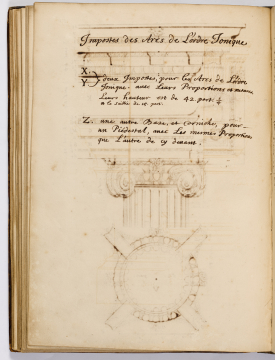 Impostes des Arcs de L'ordre Ionique
X.
Y. deux Impostes, pour Les Arcs de L'ordre
Ionique, avec Leurs Proportions et mesures
Leurs hauteur est de 42 part. ½
Z. une autre Base, et Corniche, pour
un Piedestal, avec Les mesmes Proportions
que L'autre de cy devant.